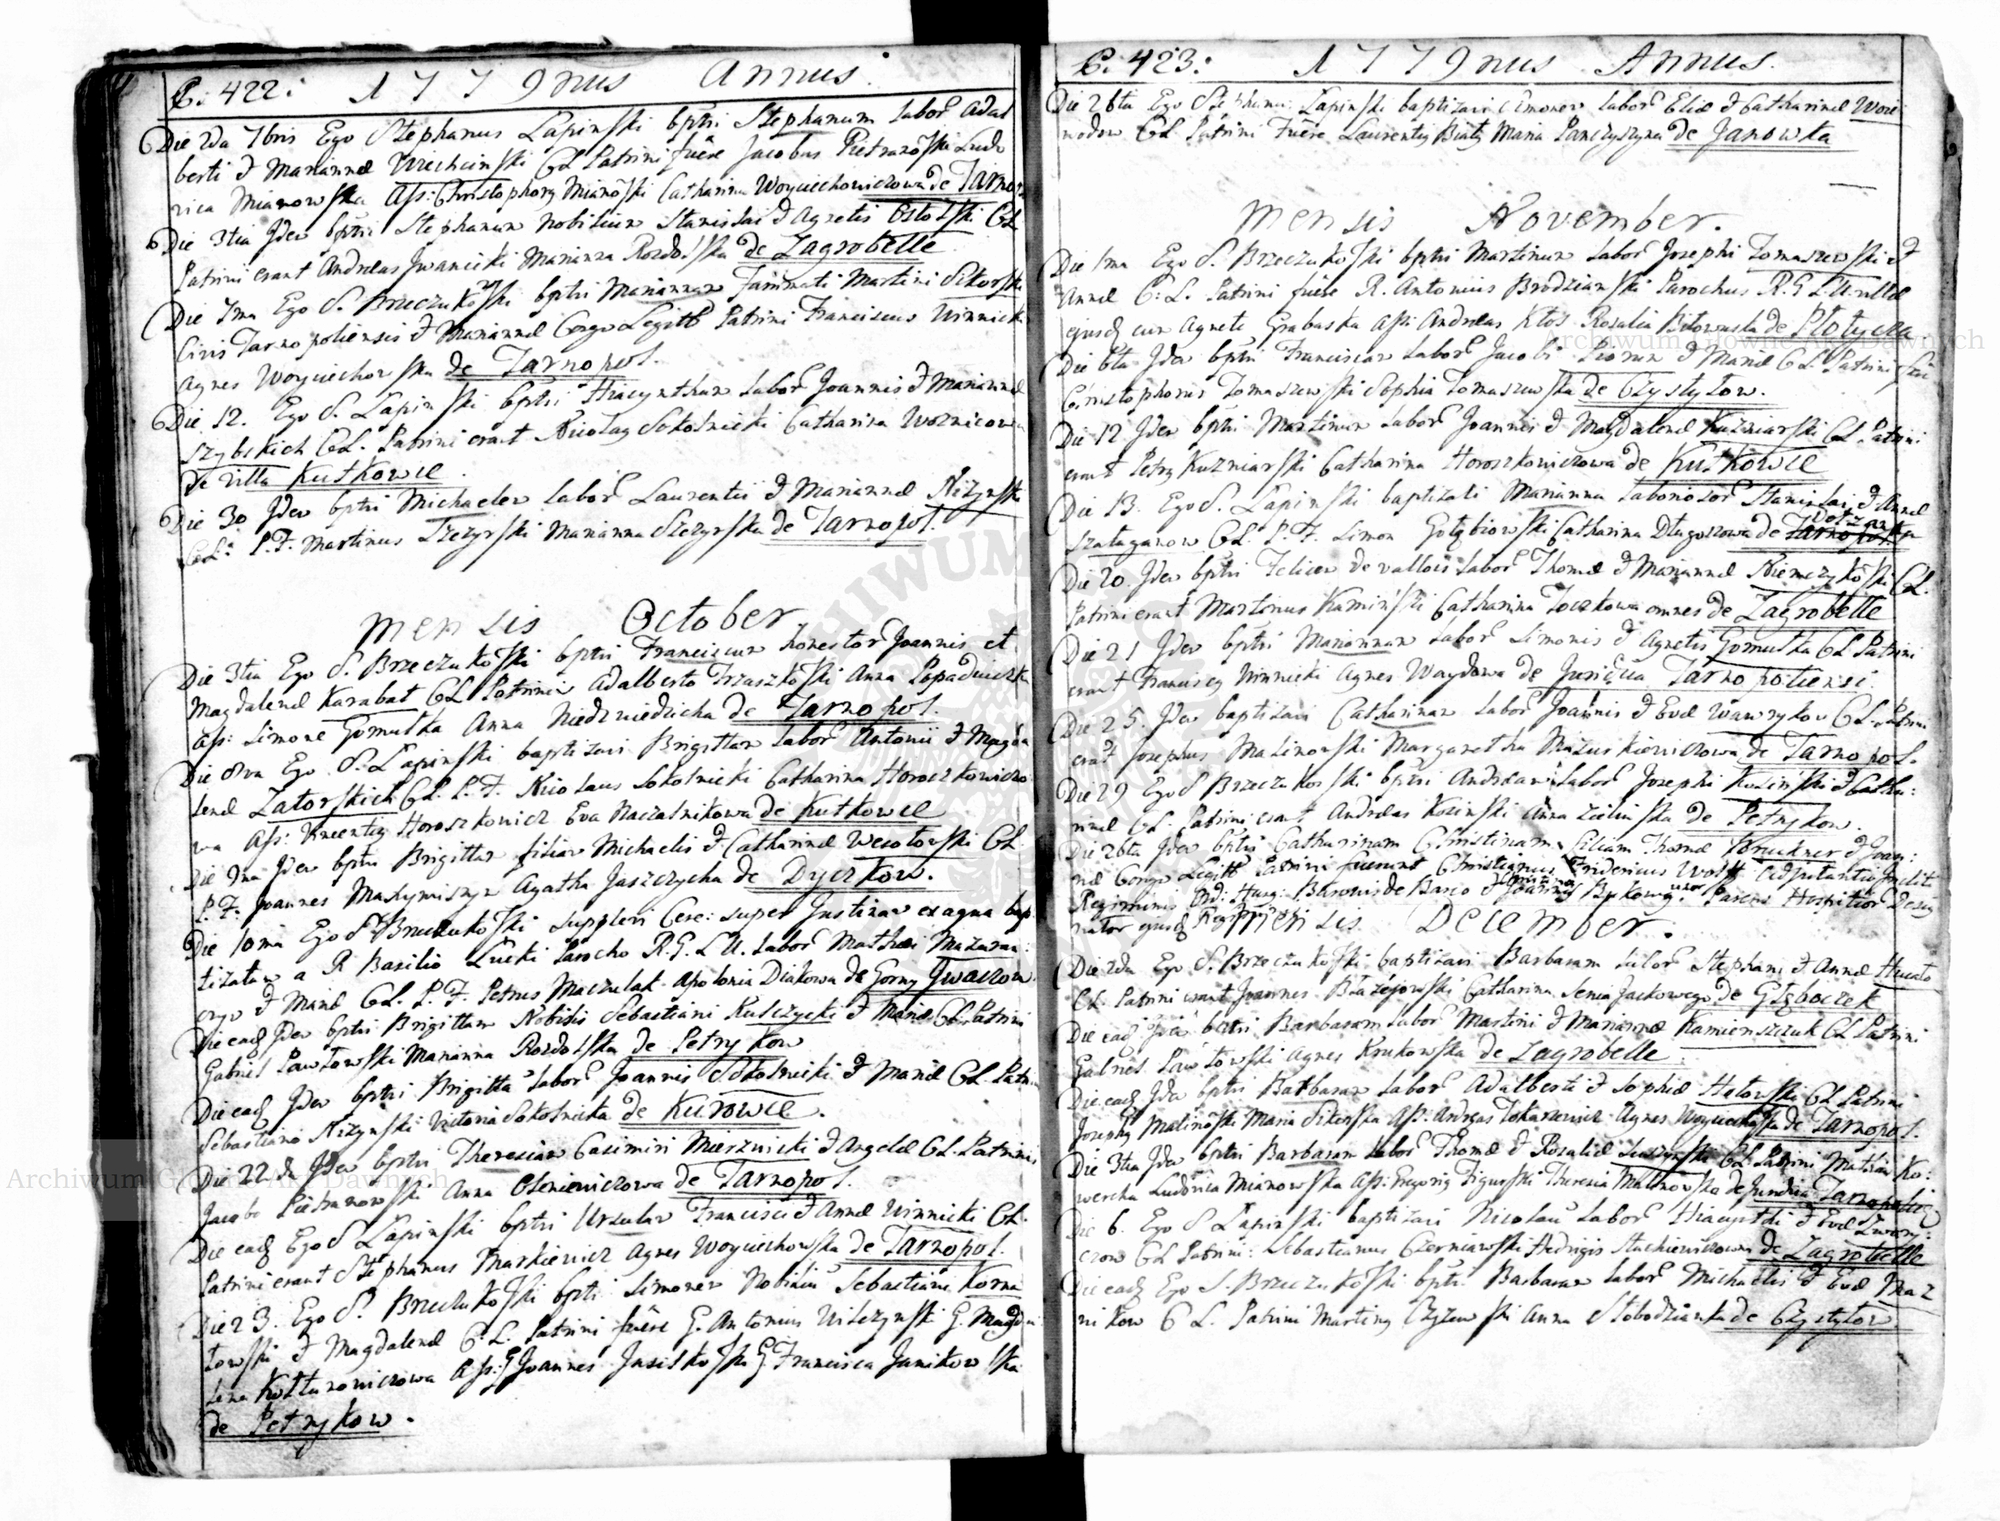 C: 422: 1779nus Annus.
Die 2da 7bris Ego Stephanus Lapinski bpti Stephanum Labor Adal
berti & Mariannæ CL Patrini fuêre Jacobus Ludo
vica Mianowska Ass: Christophorg Mianoski Catharina Woyciechowiczowa de Tarno
Die 3tia Idem bpti Stephanum Nobilium Stanislai & Agnetis CL
Patrini erant Andreas Jwanicki Marianna Rozdolska de Zagrobelle
Die 7ma Ego S. Brzeczukoski bpti Mariannam Famati Martini Sikorski
Civis Tarnopoliensis & Mariannæ Conge Legitt Patrini Franciscus Winnicki
Agnes Woyciechowska de Tarnopol.
Die 12. Ego S. Lapinski bpti Hiacynthum Labor Joannis & Mariannæ
Szybskich CL. Patrini erant Nicolag Sokolnicki Catharina Woznicowa
de villa Kutkowce
Die 30 Idem bpti Michaelem Labor Laurentii & Mariannæ Nizynski
CL: P.F. Martinus Szczyrski Marianna Szczyrska de Tarnopol.
Mensis October
Die 3tia Ego S. Brzeczukoski bpti Franciscum honestor Joannis et
Magdalenæ Karabat CL Patrini Adalberto Trzaszkoski Anna Popadiuczka
Ass: Simone Gomulka Anna Niedzwiedzicha de Tarnopol.
Die 8va Ego S. Lapinski baptizavi Brigittam Labor Antonii & Magda
lenæ Zatorskich CL. P.F. Nicolaus Sokolnicki Catharina Horoszkowiczo
wa Ass: Vincentig Horoszkowicz Eva Naczalnikowa de Kutkowce
Die 9na Idem bpti Brigittam filiam Michaelis & Catharinæ Wesolowski CL.
P.F: Joannes Maxymiszyn Agatha Jaszczycha de Dyczkow.
Die 10ma Ego S Brzeczukoski supplevi Cere: super Justinam ex aqua bap
tizatam a R Basilio Lucki Parocho R.G.L.U. Labor Mathæi Mazuran
ego & Mariæ CL. P.F. Petrus Maczulak Apolonia Diakowa de Gorny Jwaczow
Die eadg Idem bpti Brigittam Nobilis Sebastiani Kulczycki & Mariæ CL Patrini
Gabriel Pawlowski Marianna Rozdolska de Petrykow
Die eadg Idem bpti Brigitta Labor Joannis Sokolnicki & Mariæ CL Patrini
Sebastiano Nizynski Victoria Sokolnicka de Kurowce.
Die 22da Idem bpti Theresiam Casimiri Mierznicki & Angelæ CL. Patrini
Jacobo Pietranowski Anna Olsniewiczowa de Tarnopol.
Die eadg Ego S Lapinski bpti Ursulam Francisci & Annæ Winnicki CL.
Patrini erant Stephanus Markiewicz Agnes Woyciechowska de Tarnopol.
Die 23. Ego S. Brzeczukoski bpti Simonem Nobiliu Sebastiani Korna
towski & Magdalenæ C.L. Patrini fuêre G. Antonius Wilczynski G. Magda
lena Koltunowiczowa Ass: G Joannes Jasilkoski G Francisca Janikowska
de Petrykow.
C: 423: 1779nus Annus.
Die 26ta Ego Stephanu: Lapinski baptizavi Simonem Labor Eliæ & Catharinæ Wori
nodow CL Patrini Fuêre Laurentig Bialy Maria Panczyszyna de Janowka
Mensis November.
Die 1ma Ego S. Brzeczukoski bpti Martinum Labor Josephi Tomaszewski &
Annæ C: L. Patrini fuêre R. Antonius Brodzianski Parochus R.G.L.U. villæ
ejusdg cum Agnete Grabaska Ass: Andreas Klos Rosalia Bilowuska de Plotycza
Die 6ta Idem bpti Franciscam Labor Jacobi Piorun & Mariæ CL Patrini
Christophorus Tomaszewski Sophia Tomaszewska de Czystylow.
Die 12 Idem bpti Martinum Labor Joannis & Magdalenæ Kuzniarski CL Patrini
erant Petrg Kuzniarski Catharina Horoszkowiczowa de Kutkowce
Die 13. Ego S. Lapinski baptizavi Marianna Laborio sor Stanislai & Annæ
Szalaganow CL. P.F. Simon Golębiowski Catharina Dlugoszowa de Tarnopol
Die 20. Idem bpti Felicem de vallois Labor Thomæ & Mariannæ Niemczykoski CL.
Patrini erant Martinus Kaminski Catharina Joczkowa omnes de Zagrobelle
Die 21 Idem bpti Mariannam Labor Simonis & Agnetis Gomulka CL Patrini
erant Franciscg Winnicki Agnes Waydowa de Juridica Tarnopoliensi.
Die 25. Idem baptizavi Catharinam Labor Joannis & Evæ Wawrykow CL. Patrini
erat Josephus Malinowski Margaretha Mazurkiewiczowa de Tarnopol.
Die 29 Ego S Brzeczukoski bpti Andream Labor Josephi Kosinski & Catha:
rinæ CL. Patrini erant Andreas Kosinski Anna Zielinska de Petrykow.
Die 26ta Idem bpti Catharinam Christinam filiam Thomæ Bruckner & Joan:
næ Conge Legitt Patrini fuerunt Christianus Fridericus Wolff Adjutantig Incliti
Regiminis Ord: Hung: Baronis de Barco & Joannes uxor
nator ejusdg Regi:
Mensis December.
Die 2da Ego S. Brzeczukoski baptizavi Barbaram Labor Stephani & Annæ Hucalo
CL Patrini erant Joannes Blażejowski Catharina Senia Jackowego de Głęboczek
Die ead Idem bptvi Barbaram Labor Martini & Mariannæ Kamienszczuk CL Patrini
Gabriel Pawlowski Agnes Krukowska de Zagrobelle.
Die eadg Idem bpti Barbaram Labor Adalberti & Sophiæ Halowski CL Patrini
Josephg Malinoski Maria Sikorska Ass: Andreas Tokarzewicz Agnes Woyciechoska de Tarnopol.
Die 3tia Idem bpti Barbaram Labor Thomæ & Rosaliæ CL Patrini Mathia Ko:
wercka Ludovica Mianowska Ass: Gregorig Figurski Theresia Malinowska de Juridica Tarnopoli
Die 6. Ego S Lapinski baptizavi Nicolau Labor Hiacynthi & Evæ
czow CL Patrini: Sebastianus Czerniawski Hedvigis Stachiewiczowa de Zagrobelle
Die eadg Ego S. Brzeczukoski bpti Barbaram Labor Michaelis & Evæ Maz
nikow C L. Patrini Marting Czyzewski Anna Slobodzianka de Czystylow
Archiwum Główne Akt Dawnych
Archiwum Główne Akt Dawnych